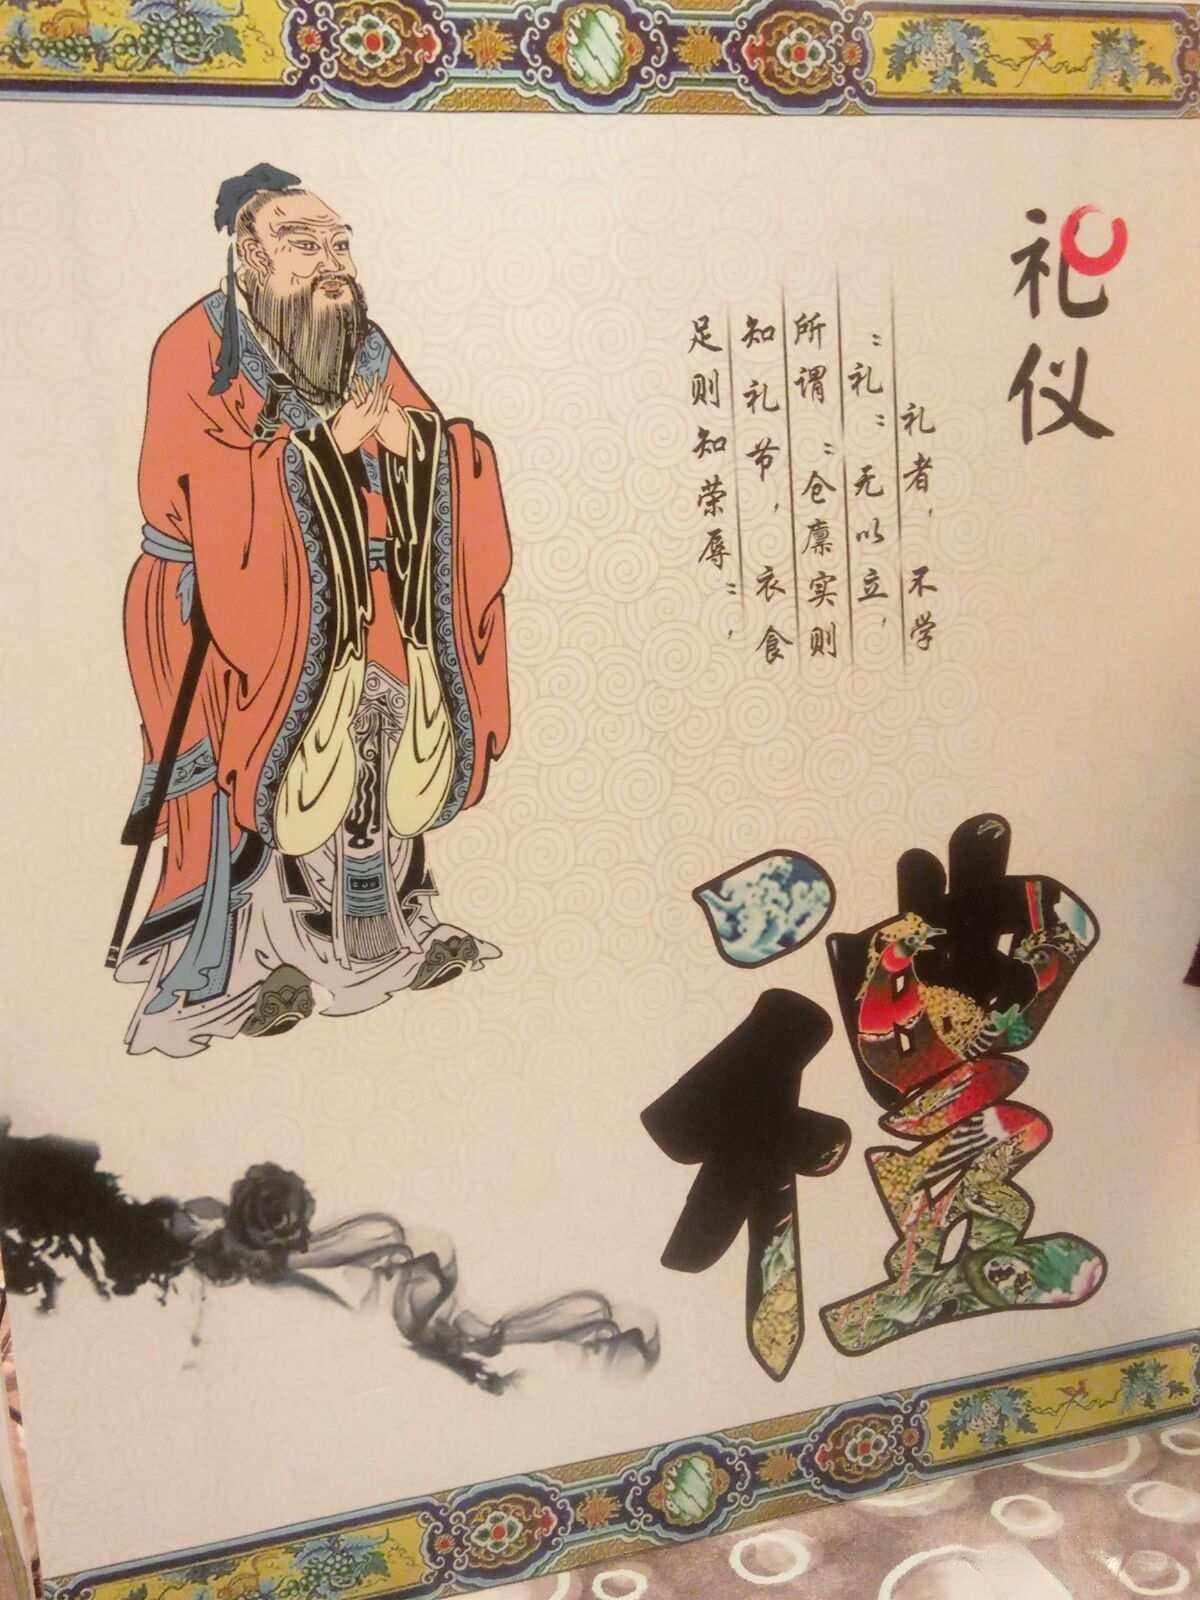 礼仪
礼者，不学
：礼：无以立，
所谓：仓廪实则
知礼节，衣食
足则知荣辱：，
禮